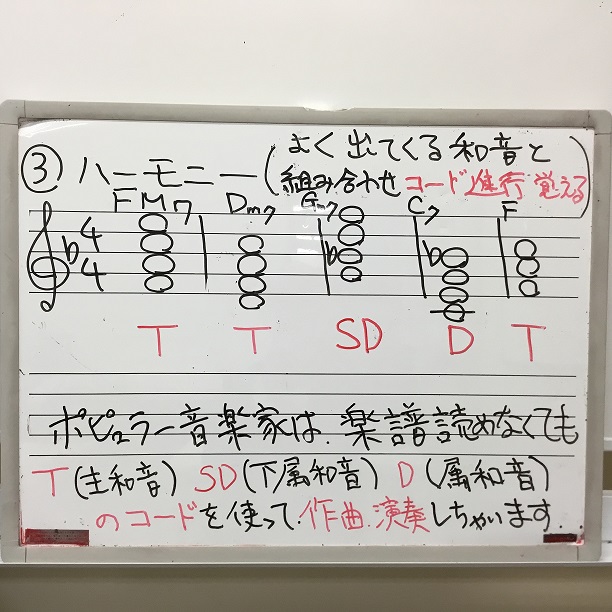 ③ ハーモニー(よく出てくる和音と
組み合わせ コード進行 覚える)
FM7 Dm7 Gm7 C7 F
4
4
T T SD D T
ポピュラー音楽家は、楽譜読めなくても
T(主和音) SD(下属和音) D(属和音)
のコードを使って、作曲、演奏しちゃいます。